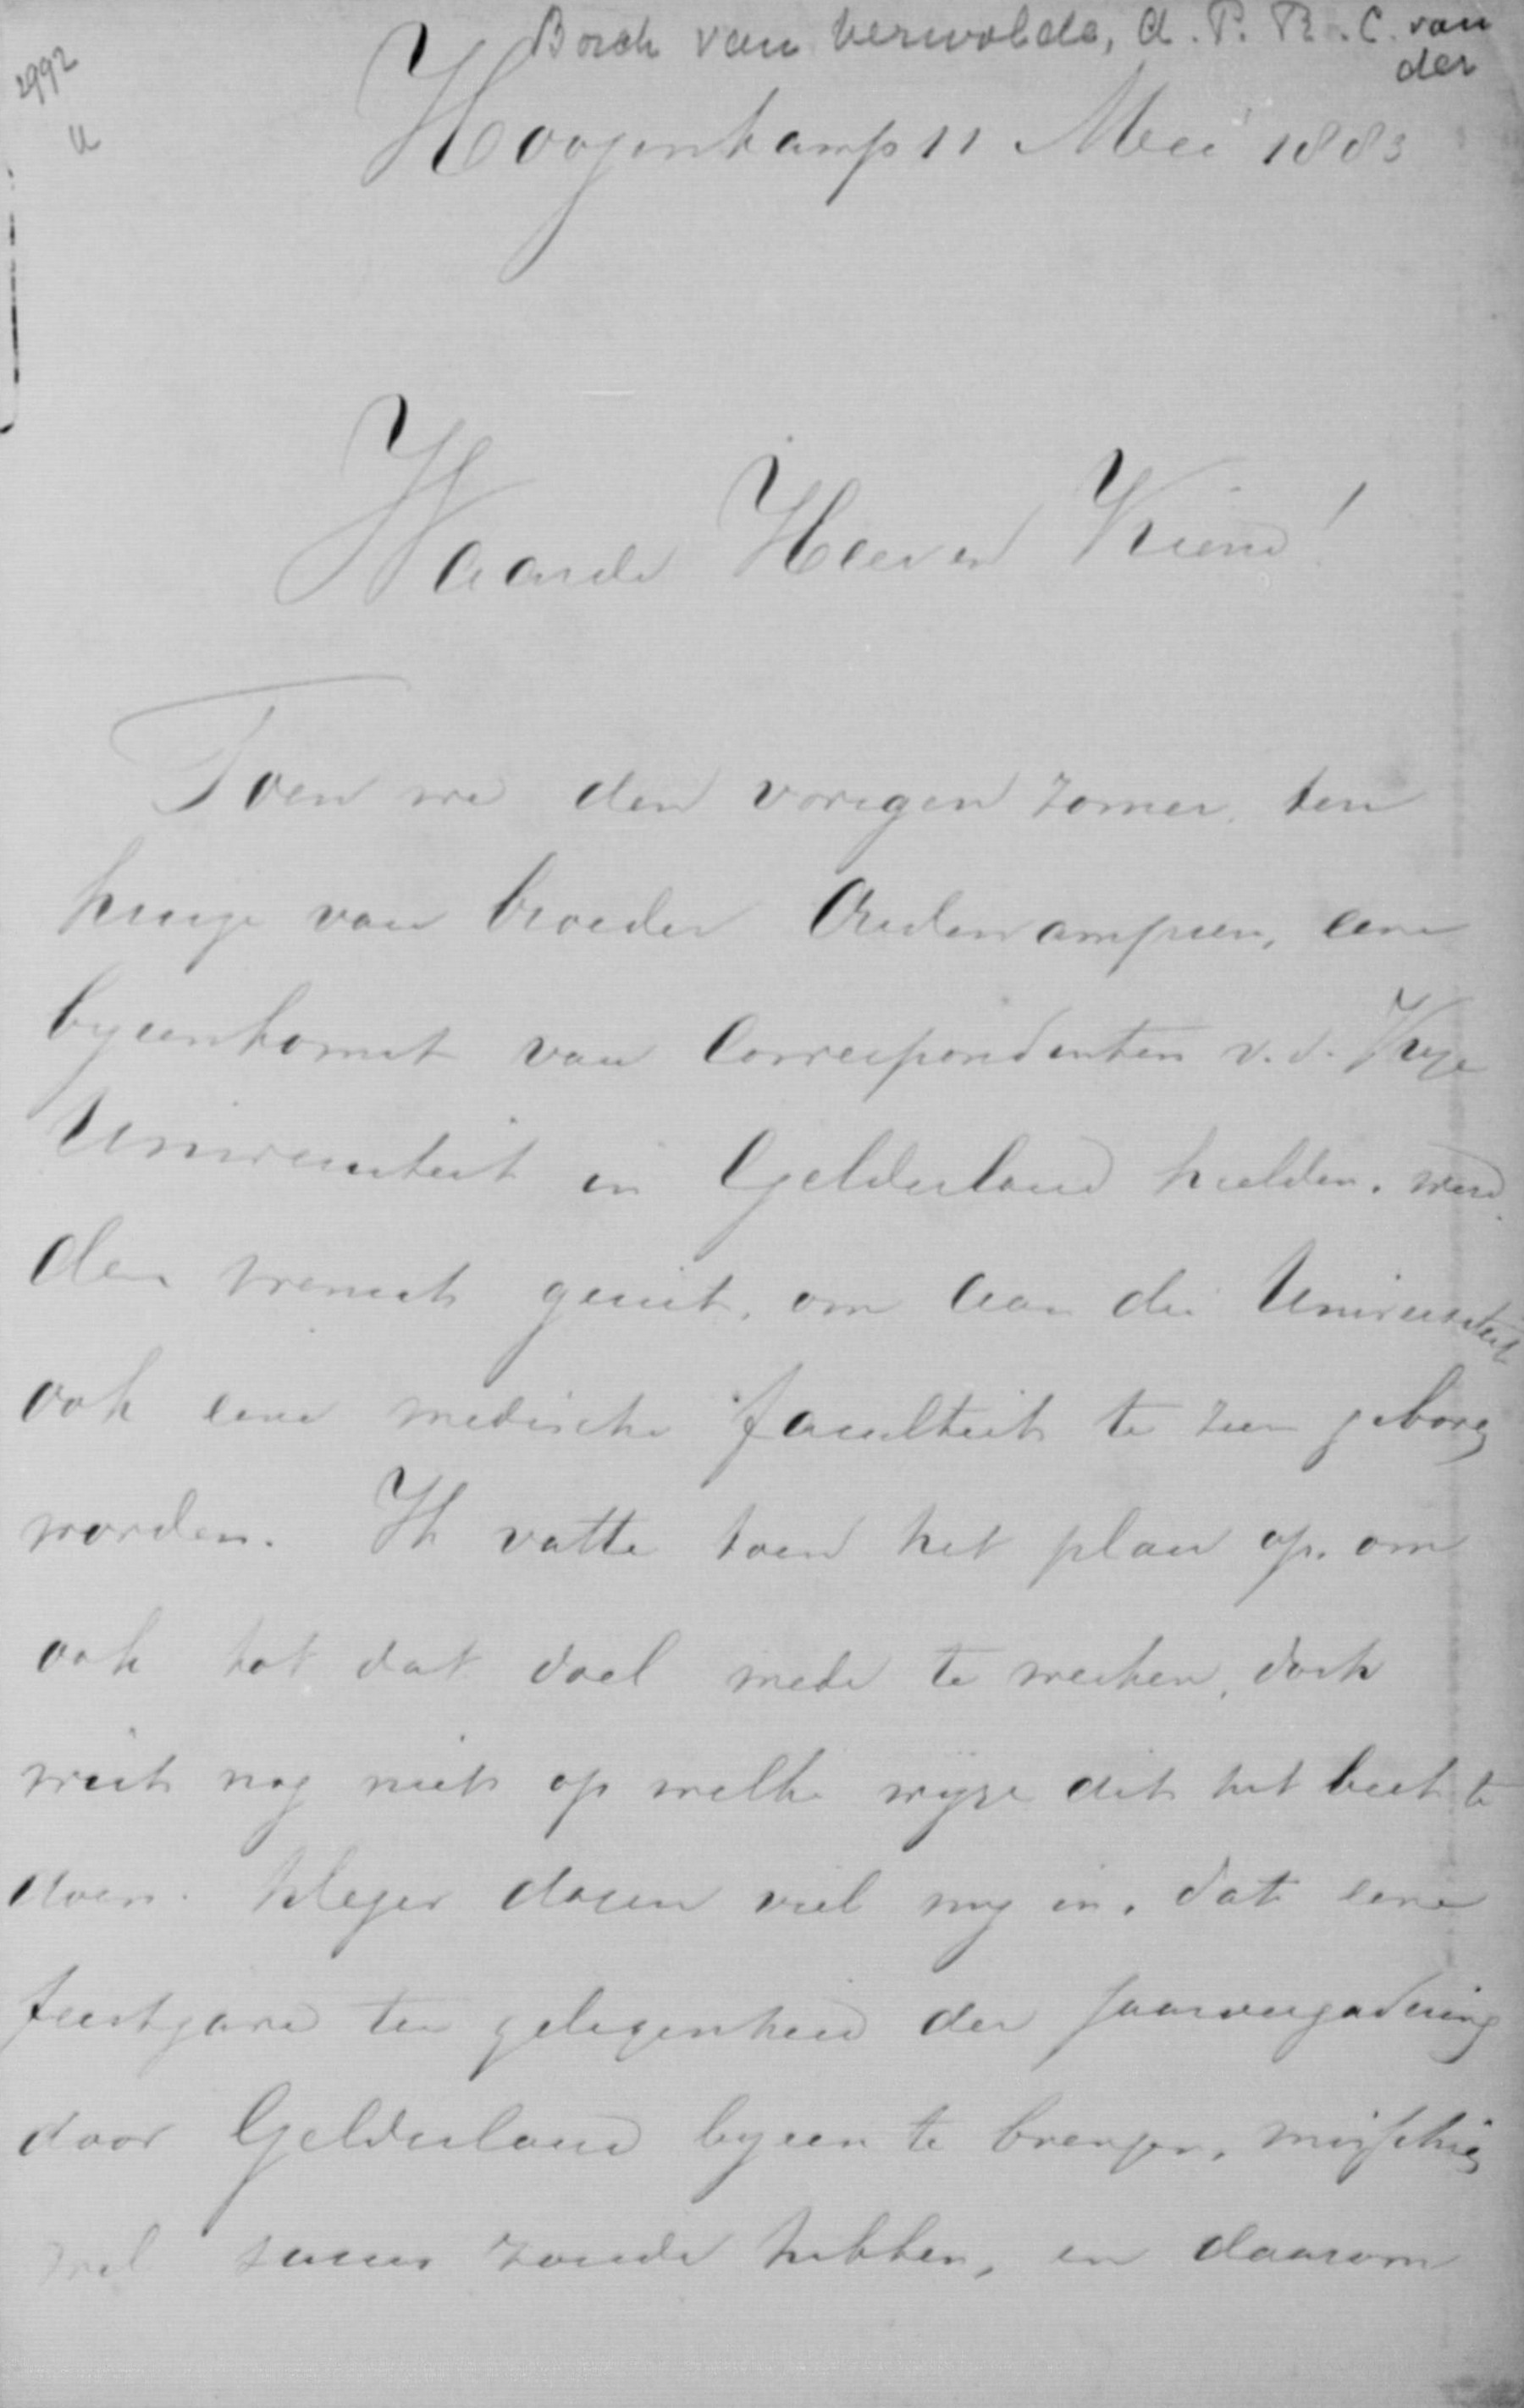 Borch van Verwolde, A. P. R. C. van
der
2992
a
Hoogenkamp 11 Mei 1883
Waarde Heer en Vriend!
Toen we den vorigen zomer, ten
huize van broeder, eene
byeenkomst van Correspondenten v. d. Vrye
Universiteit in Gelderland hielden, werd
den wensch geuit, om aan die Universiteit
ook eene medische faculteit te zien geboren
worden. Ik vatte toen het plan op, om
ook tot dat doel mede te werken, doch
wist nog niet op welke wyze dit het best te
doen. dezer dagen viel my in, dat eene
feestgave ter gelegenheid der Jaarvergadering
door Gelderland byeen te brengen, misschien
wel succes zoude hebben, en daarom